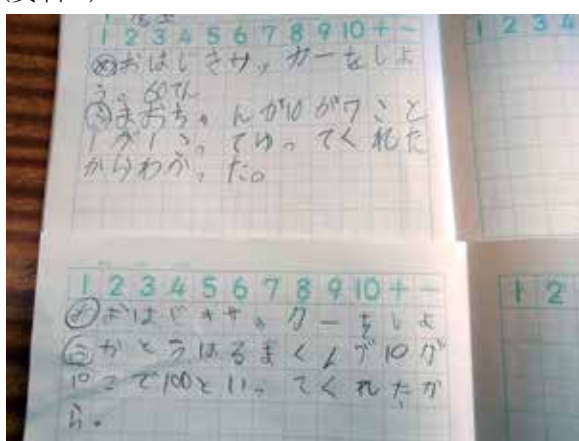 1 2 3 4 5 6 7 8 9 10 + −
めおはじきサッカーをしよ
う。60てん
うまおちゃんが10が7こと
1が1こってゆってくれた
からわかった。
1 2 3 4
1 2 3 4 5 6 7 8 9 10 + −
めおはじきサッカーをしよ
うかとうはるまくんが10が
10こで100といってくれたか
ら。
1 2